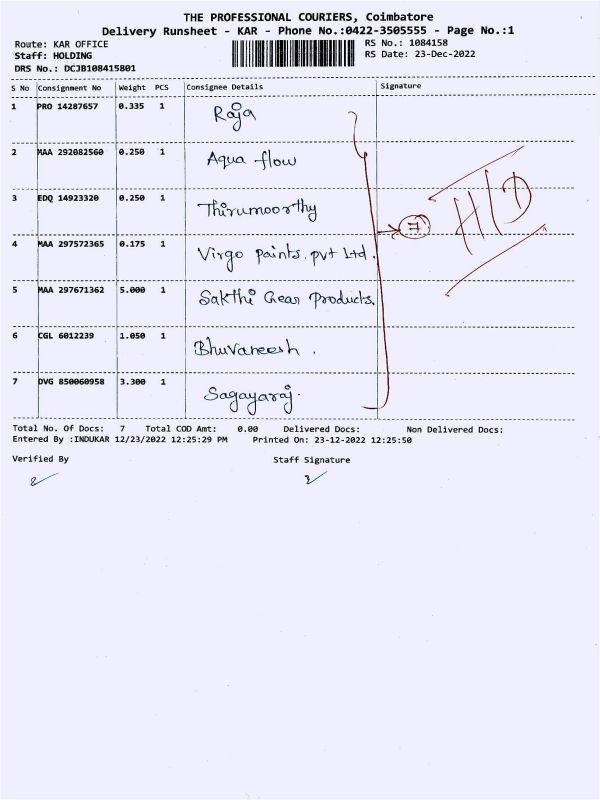 THE PROFESSIONAL COURIERS, Coimbatore
Delivery Runsheet - KAR - Phone No.:0422-3505555 - Page No.:1
Route: KAR OFFICE RS No.: 1084158
Staff: HOLDING RS Date: 23-Dec-2022
DRS No.: DCJB108415801
S No Consignment No Weight PCS Consignee Details Signature
1 PRO 14287657 0.335 1 Raja
2 MAA 292082560 0.250 1 Aqua flow
3 EDQ 14923320 0.250 1 Thirumoorthy
7 H/D
4 MAA 297572365 0.175 1 Virgo paints. pvt Ltd.
5 MAA 297671362 5.000 1 Sakthi Gear Products.
6 CGL 6012239 1.050 1 Bhuvaneesh.
7 DVG 850060958 3.300 1 Sagayaraj.
Total No. Of Docs: 7 Total COD Amt: 0.00 Delivered Docs: Non Delivered Docs:
Entered By :INDUKAR 12/23/2022 12:25:29 PM Printed On: 23-12-2022 12:25:50
Verified By Staff Signature